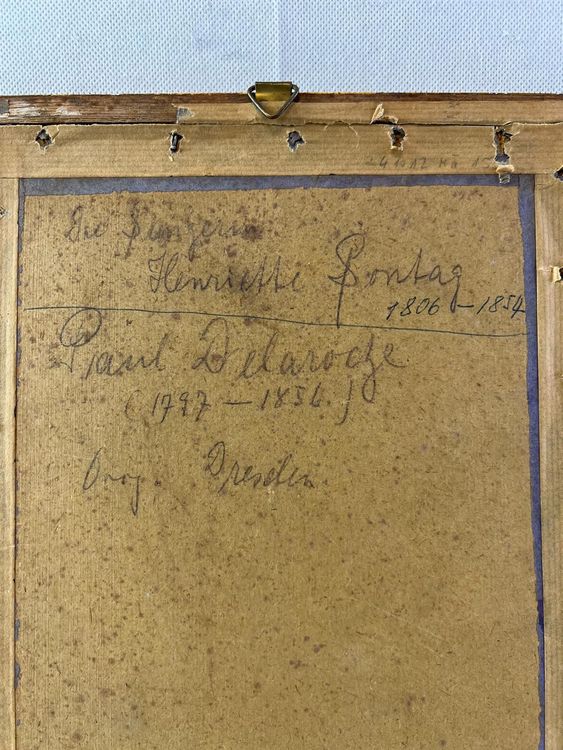 Die Sängerin
Henriette Sontag
1806 – 1854
Paul Delaroche
(1797 – 1856.)
Orig. Dresden.